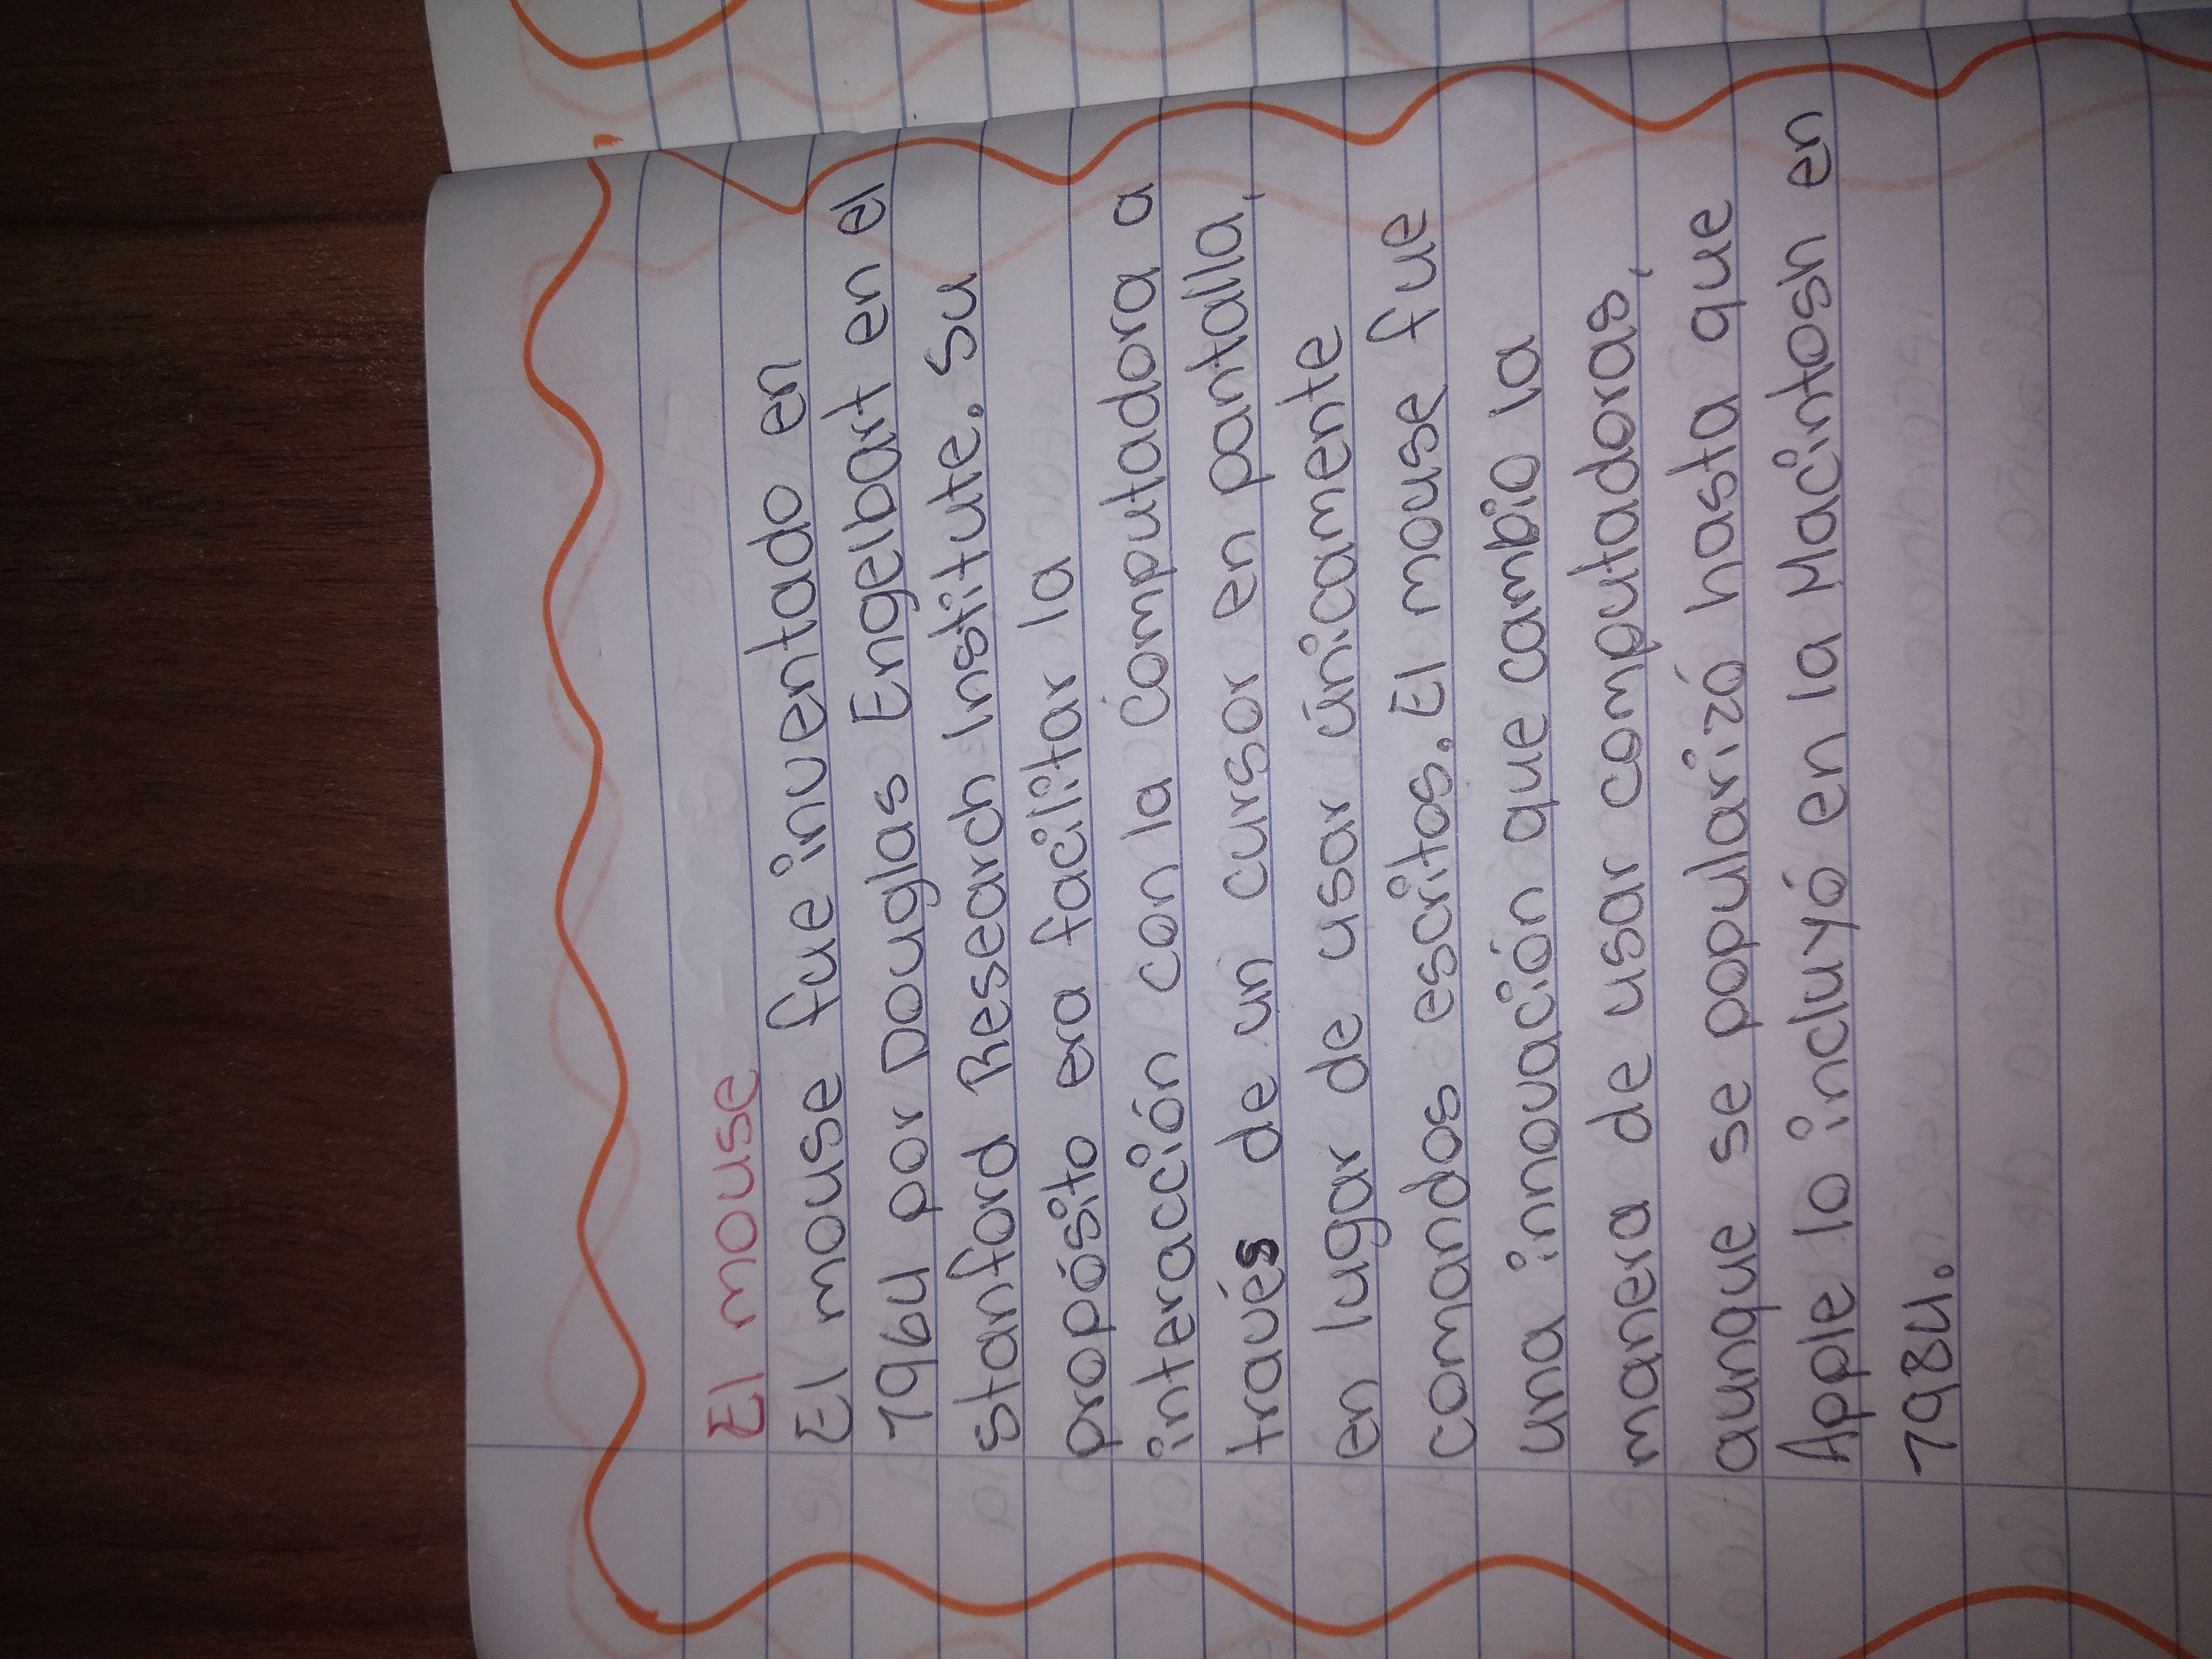 El mouse
El mouse fue inventado en
1964 por Douglas Engelbart en el
stanford Research Institute. Su
propósito era facilitar la
interacción con la computadora a
través de un cursor en pantalla,
en lugar de usar únicamente
comandos escritos. El mouse fue
una innovación que cambio la
manera de usar computadoras,
aunque se popularizó hasta que
Apple lo incluyó en la Macintosh en
1984.